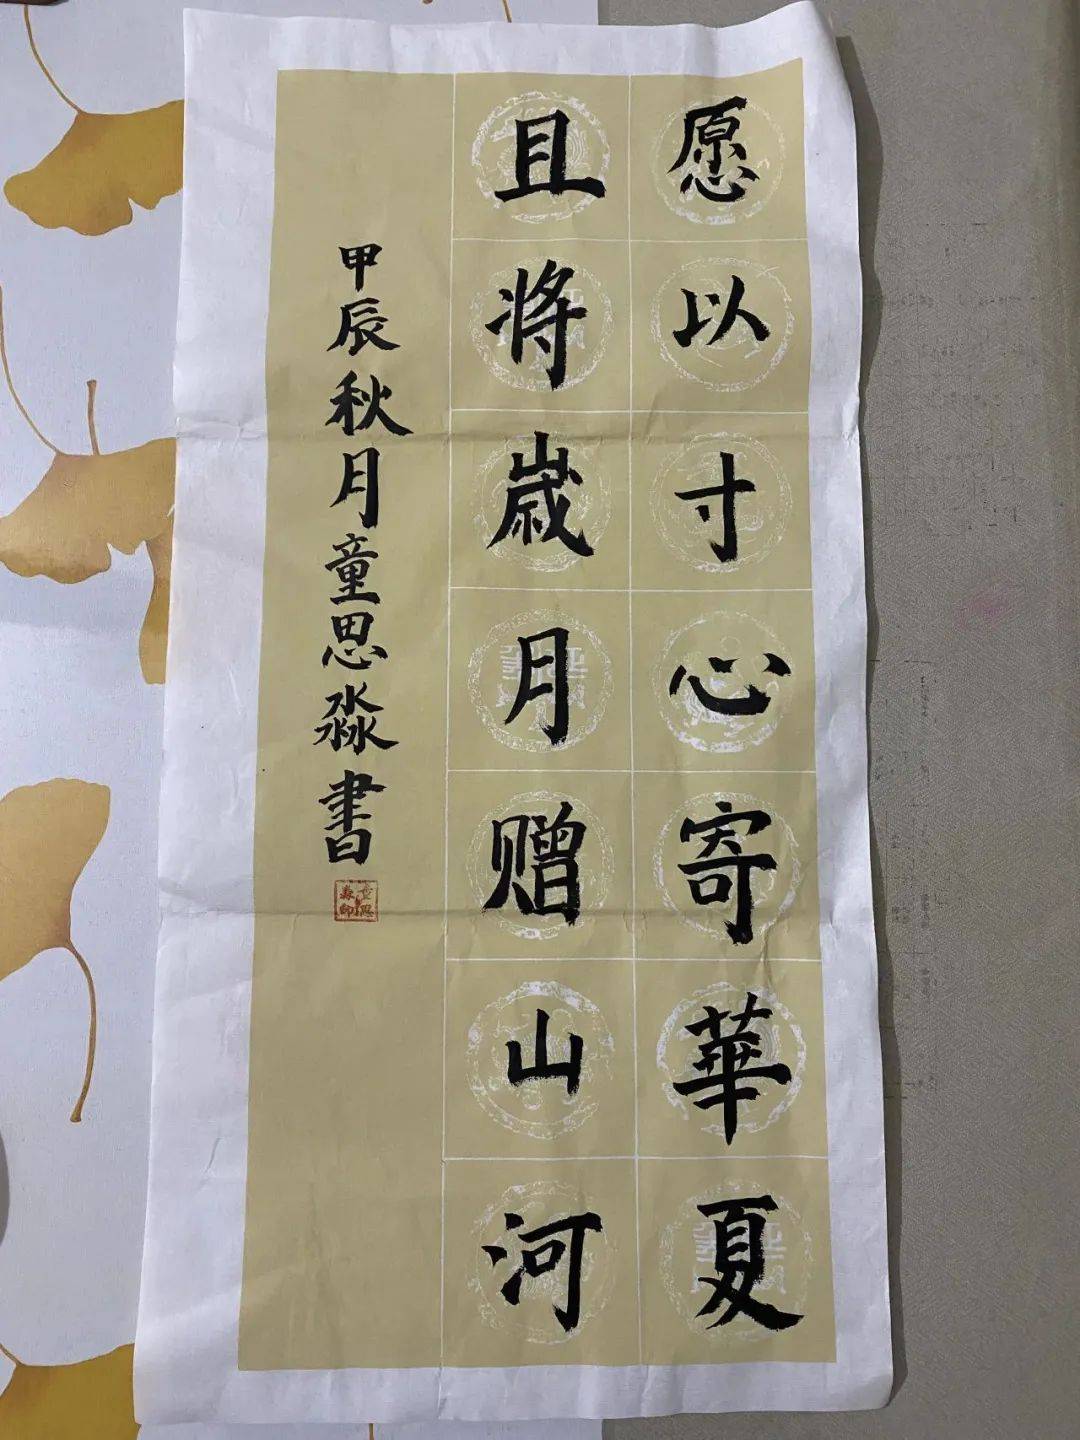 愿以寸心寄華夏
且将歲月赠山河
甲辰秋月童思淼書